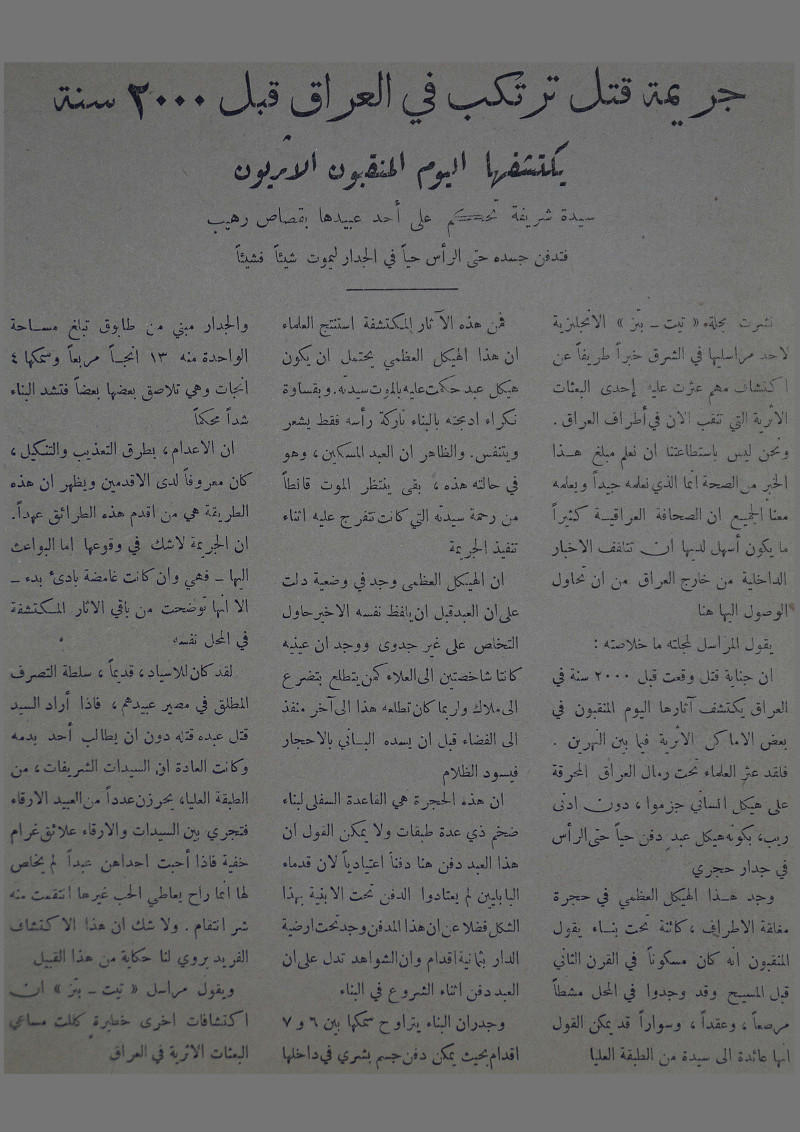 جريمة قتل ترتكب في العراق قبل ٢٠٠٠ سنة
يكتشفها اليوم المنقبون الأثريون
سيدة شريفة تحكم على أحد عبيدها بقصاص رهيب
فتدفن جسده حتى الرأس حياً في الجدار ليموت شيئاً فشيئاً
نشرت مجلة « تيت ـ بتز » الانجليزية
لاحد مراسليها في الشرق خبراً طريفاً عن
اكتشاف مهم عثرت عليه إحدى البعثات
الأثرية التي تنقب الان في أطراف العراق .
ونحن ليس باستطاعتنا ان نعلم مبلغ هذا
الخبر من الصحة انما الذي نعلمه جيداً ويعلمه
معنا الجميع ان الصحافة العراقية كثيراً
ما يكون أسهل لديها ان تتلقف الاخبار
الداخلية من خارج العراق من ان تحاول
الوصول اليها هنا
يقول المراسل لمجلته ما خلاصته :
ان جناية قتل وقعت قبل ٢٠٠٠ سنة في
العراق يكتشف آثارها اليوم المنقبون في
بعض الاماكن الأثرية فيما بين النهرين .
فلقد عثر العلماء تحت رمال العراق المحرقة
على هيكل انساني جزموا ، دون ادنى
ريب، بكونه هيكل عبد دفن حياً حتى الرأس
في جدار حجري
وجد هذا الهيكل العظمي في حجرة
مغلقة الاطراف ، كائنة تحت بناء يقول
المنقبون انه كان مسكوناً في القرن الثاني
قبل المسيح وقد وجدوا في المحل مشطاً
مرصعاً ، وعقداً ، وسواراً قد يمكن القول
انها عائدة الى سيدة من الطبقة العليا
فمن هذه الآثار المكتشفة استنتج العلماء
ان هذا الهيكل العظمي يحتمل ان يكون
هيكل عبد حكمت عليه بالموت سيدته. وبقساوة
نكراء ادمجته بالبناء تاركة رأسه فقط يشعر
ويتنفس. والظاهر ان العبد المسكين، وهو
في حالته هذه ، بقى ينتظر الموت قانطاً
من رحمة سيدته التي كانت تتفرج عليه اثناء
تنفيذ الجريمة
ان الهيكل العظمى وجد في وضعية دلت
على ان العبد قبل ان يلفظ نفسه الاخير حاول
التخاص على غير جدوى ووجد ان عينيه
كانتا شاخصتين الى العلاء كمن يتطلع بتضرع
الى ملاك ولربما كان تطلعه هذا الى آخر منفذ
الى الفضاء قبل ان يسده الباني بالاحجار
فيسود الظلام
ان هذه الحجرة هي القاعدة السفلى لبناء
ضخم ذي عدة طبقات ولا يمكن القول ان
هذا العبد دفن هنا دفناً اعتيادياً لان قدماء
البابليين لم يعتادوا الدفن تحت الابنية بهذا
الشكل فضلا عن ان هذا المدفن وجد تحت ارضية
الدار بثمانية اقدام وان الشواهد تدل على ان
العبد دفن اثناء الشروع في البناء
وجدران البناء يتراوح سمكها بين ٦ و ٧
اقدام بحيث يمكن دفن جسم بشري في داخلها
والجدار مبني من طابوق تبلغ مساحة
الواحدة منه ١٣ انجاً مربعاً وسمكها ٤
انجات وهي تلاصق بعضها بعضاً فتشد البناء
شداً محكماً
ان الاعدام، بطرق التعذيب والتنكيل ،
كان معروفاً لدى الاقدمين ويظهر ان هذه
الطريقة هي من اقدم هذه الطرائق عهداً.
ان الجريمة لاشك في وقوعها اما البواعث
اليها ـ فهي وان كانت غامضة بادئ بدء ـ
الا انها توضحت من باقي الاثار المكتشفة
في المحل نفسه
لقد كان للاسياد ، قديماً ، سلطة التصرف
المطلق في مصير عبيدهم ، فاذا أراد السيد
قتل عبده قتله دون ان يطالب أحد بدمه
وكانت العادة ان السيدات الشريفات ، من
الطبقة العليا، يحرزن عدداً من العبيد الارقاء
فتجري بين السيدات والارقاء علائق غرام
خفية فاذا أحبت احداهن عبداً لم يخلص
لها انما راح يعاطي الحب غيرها انتقمت منه
شر انتقام . ولا شك ان هذا الاكتشاف
الفريد يروي لنا حكاية من هذا القبيل
ويقول مراسل « تيت ـ بتز » ان
اكتشافات اخرى خطيرة كللت مساعي
البعثات الاثرية في العراق